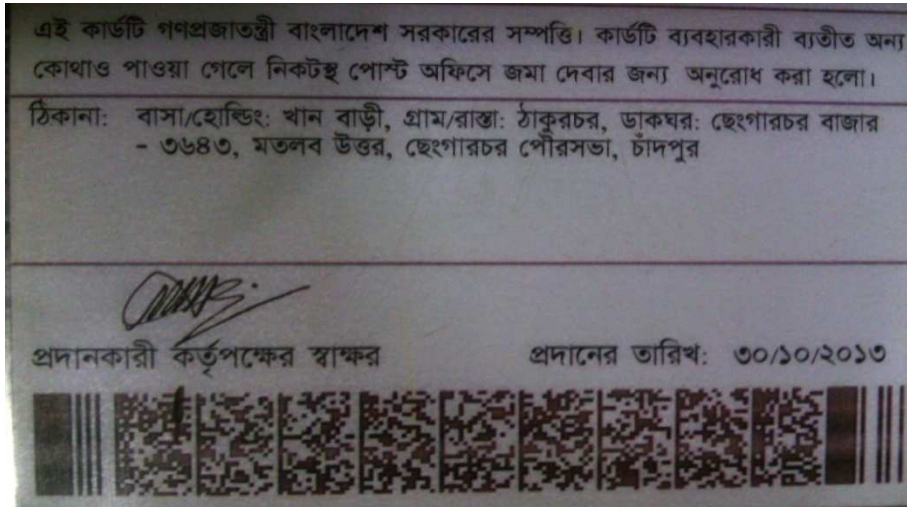 এই কার্ডটি গণপ্রজাতন্ত্রী বাংলাদেশ সরকারের সম্পত্তি। কার্ডটি ব্যবহারকারী ব্যতীত অন্য
কোথাও পাওয়া গেলে নিকটস্থ পোস্ট অফিসে জমা দেবার জন্য অনুরোধ করা হলো।
ঠিকানা: বাসা/হোল্ডিং: খান বাড়ী, গ্রাম/রাস্তা: ঠাকুরচর, ডাকঘর: ছেংগারচর বাজার
- ৩৬৪৩, মতলব উত্তর, ছেংগারচর পৌরসভা, চাঁদপুর
প্রদানকারী কর্তৃপক্ষের স্বাক্ষর প্রদানের তারিখ: ৩০/১০/২০১৩